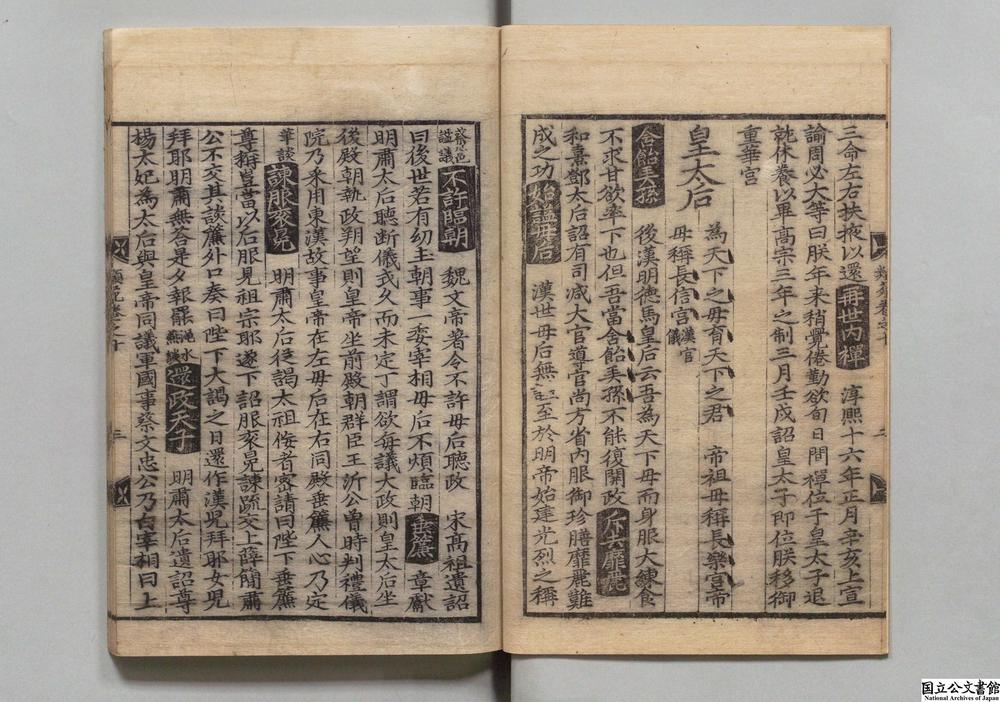 三命左右扶掖以還再世内禪淳熙十六年正月辛亥上宣
諭周必大等曰朕年来稍覺倦勤欲旬日間禪位于皇太子退
就休養以畢髙宗三年之制三月壬戌詔皇太子即位朕移御
重華宮
皇太后
為天下之母有天下之君 帝祖母稱長樂宮帝
母稱長信宮漢官儀
含飴弄孫 後漢明徳馬皇后云吾為天下母而身服大練食
不求甘欲率下也但吾當含飴弄孫不能復關政斥去靡麗
和熹鄧太后詔有司减大官導官尚方省内服御珍膳靡麗難
成之功始謚母后漢世母后無謚至於明帝始建光烈之稱
蔡邕謚議不許臨朝魏文帝著令不許母后聽政 宋髙祖遺詔
曰後世若有幼主朝事一委宰相母后不煩臨朝垂簾章獻
明肅太后聽断儀式久而未定丁謂欲每議大政則皇太后坐
後殿朝執政朔望則皇帝坐前殿朝群臣王沂公曾時判禮儀
院乃采用東漢故事皇帝在左母后在右同殿垂簾人心乃定
華談諫服衮冕 明肅太后欲謁太祖侫者密請曰陛下垂簾
尊拜豈當以后服見祖宗耶遂下詔服衮冕諫疏交上薛簡肅
公不交其談簾外口奏曰陛下大謁之日還作漢兒拜耶女兒
拜耶明肅無答是夕報罷澠水燕談還政天子 明肅太后遺詔尊
楊太妃為太后與皇帝同議軍國事蔡文忠公乃白宰相曰上
類 卷之十
二
類 卷之十
三
国立公文書館
National Archives of Japan